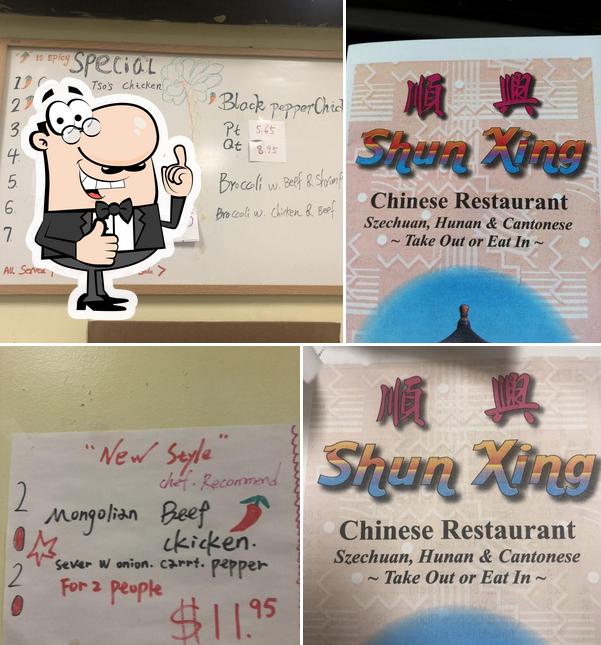 is spicy
SPECIAL
1
Tso's Chicken
2
3
4
5
6
7
Black pepper Chic
Pt 5.65
Qt 8.95
Broccoli w. Beef & Shrim
Broccoli w. Chicken & Beef
All Serve
順 興
Shun Xing
Chinese Restaurant
Szechuan, Hunan & Cantonese
~ Take Out or Eat In ~
"New Style"
chef. Recommend
Mongolian Beef
ckicken.
Sever w onion. carrt. pepper
For 2 people
$11.95
2
0
2
0
順 興
Shun Xing
Chinese Restaurant
Szechuan, Hunan & Cantonese
~ Take Out or Eat In ~